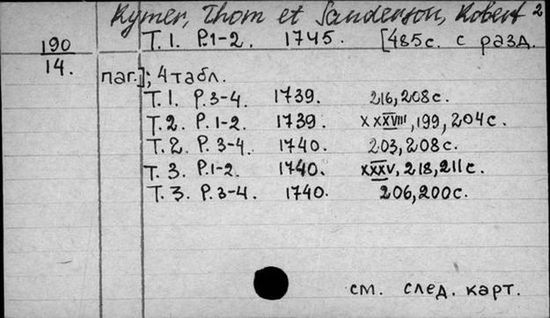 Rymer, Thom et Sanderson, Robert 2
190
14.
Т. 1. Р.1-2. 1745. [485с. с разд.
паг.]; 4 табл.
Т. 1. Р.3-4. 1739. 216, 208с.
Т. 2. Р.1-2. 1739. XXXVIII, 199, 204с.
Т. 2. Р.3-4. 1740. 203, 208с.
Т. 3. Р.1-2. 1740. XXXV, 218, 211с.
Т. 3. Р.3-4. 1740. 206, 200с.
см. след. карт.